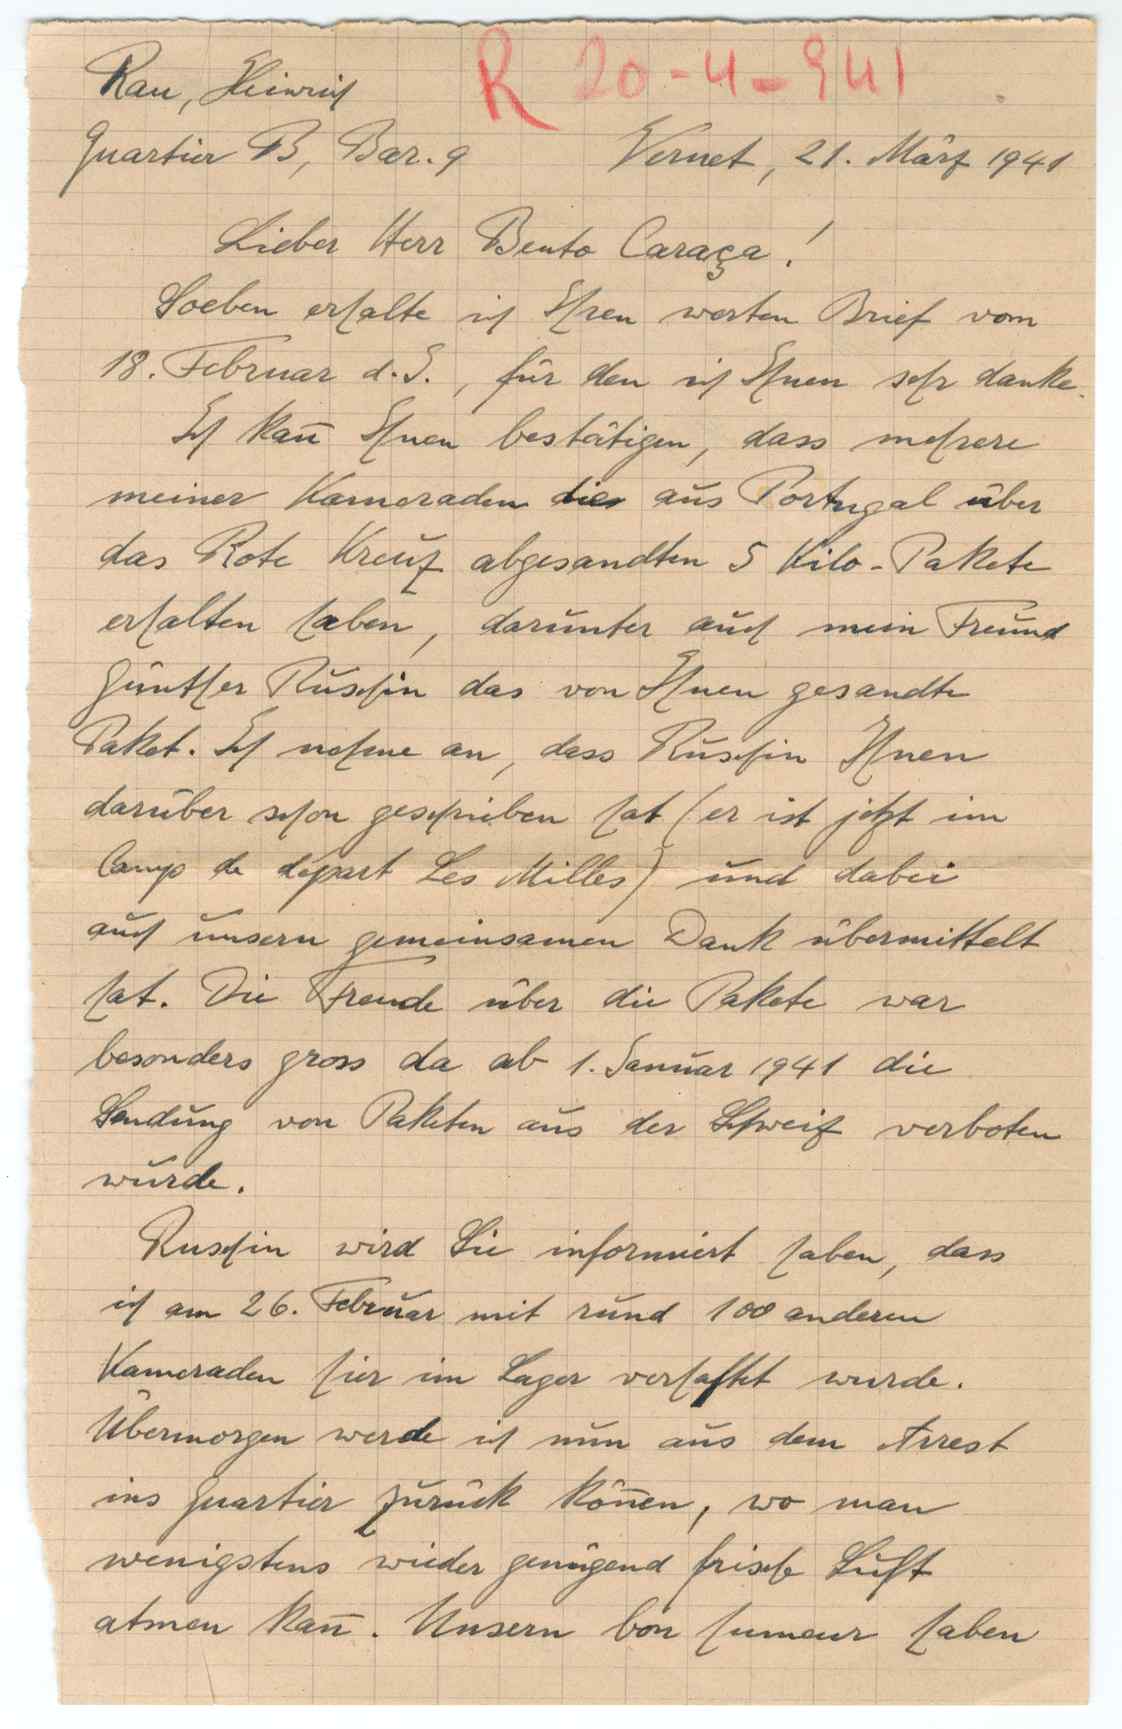 R 20-4-941
Rau, Heinrich
Quartier B, Bar. 9 Vernet, 21. März 1941
Lieber Herr Bento Caraça!
Soeben erhalte ich Ihren werten Brief vom
18. Februar d. J., für den ich Ihnen sehr danke.
Ich kann̄ Ihnen bestätigen, dass mehrere
meiner Kameraden die aus Portugal über
das Rote Kreuz abgesandten 5 Kilo-Pakete
erhalten haben, darunter auch mein Freund
Günther Ruschin das von Ihnen gesandte
Paket. Ich nehme an, dass Ruschin Ihnen
darüber schon geschrieben hat (er ist jetzt im
Camp de départ Les Milles) und dabei
auch unsern gemeinsamen Dank übermittelt
hat. Die Freude über die Pakete war
besonders gross da ab 1. Januar 1941 die
Sendung von Paketen aus der Schweiz verboten
wurde.
Ruschin wird Sie informiert haben, dass
ich am 26. Februar mit rund 100 anderen
Kameraden hier im Lager verhaftet wurde.
Übermorgen werde ich nun aus dem Arrest
ins Quartier zurück kön̄en, wo man
wenigstens wieder genügend frische Luft
atmen kan̄. Unsern bon humeur haben